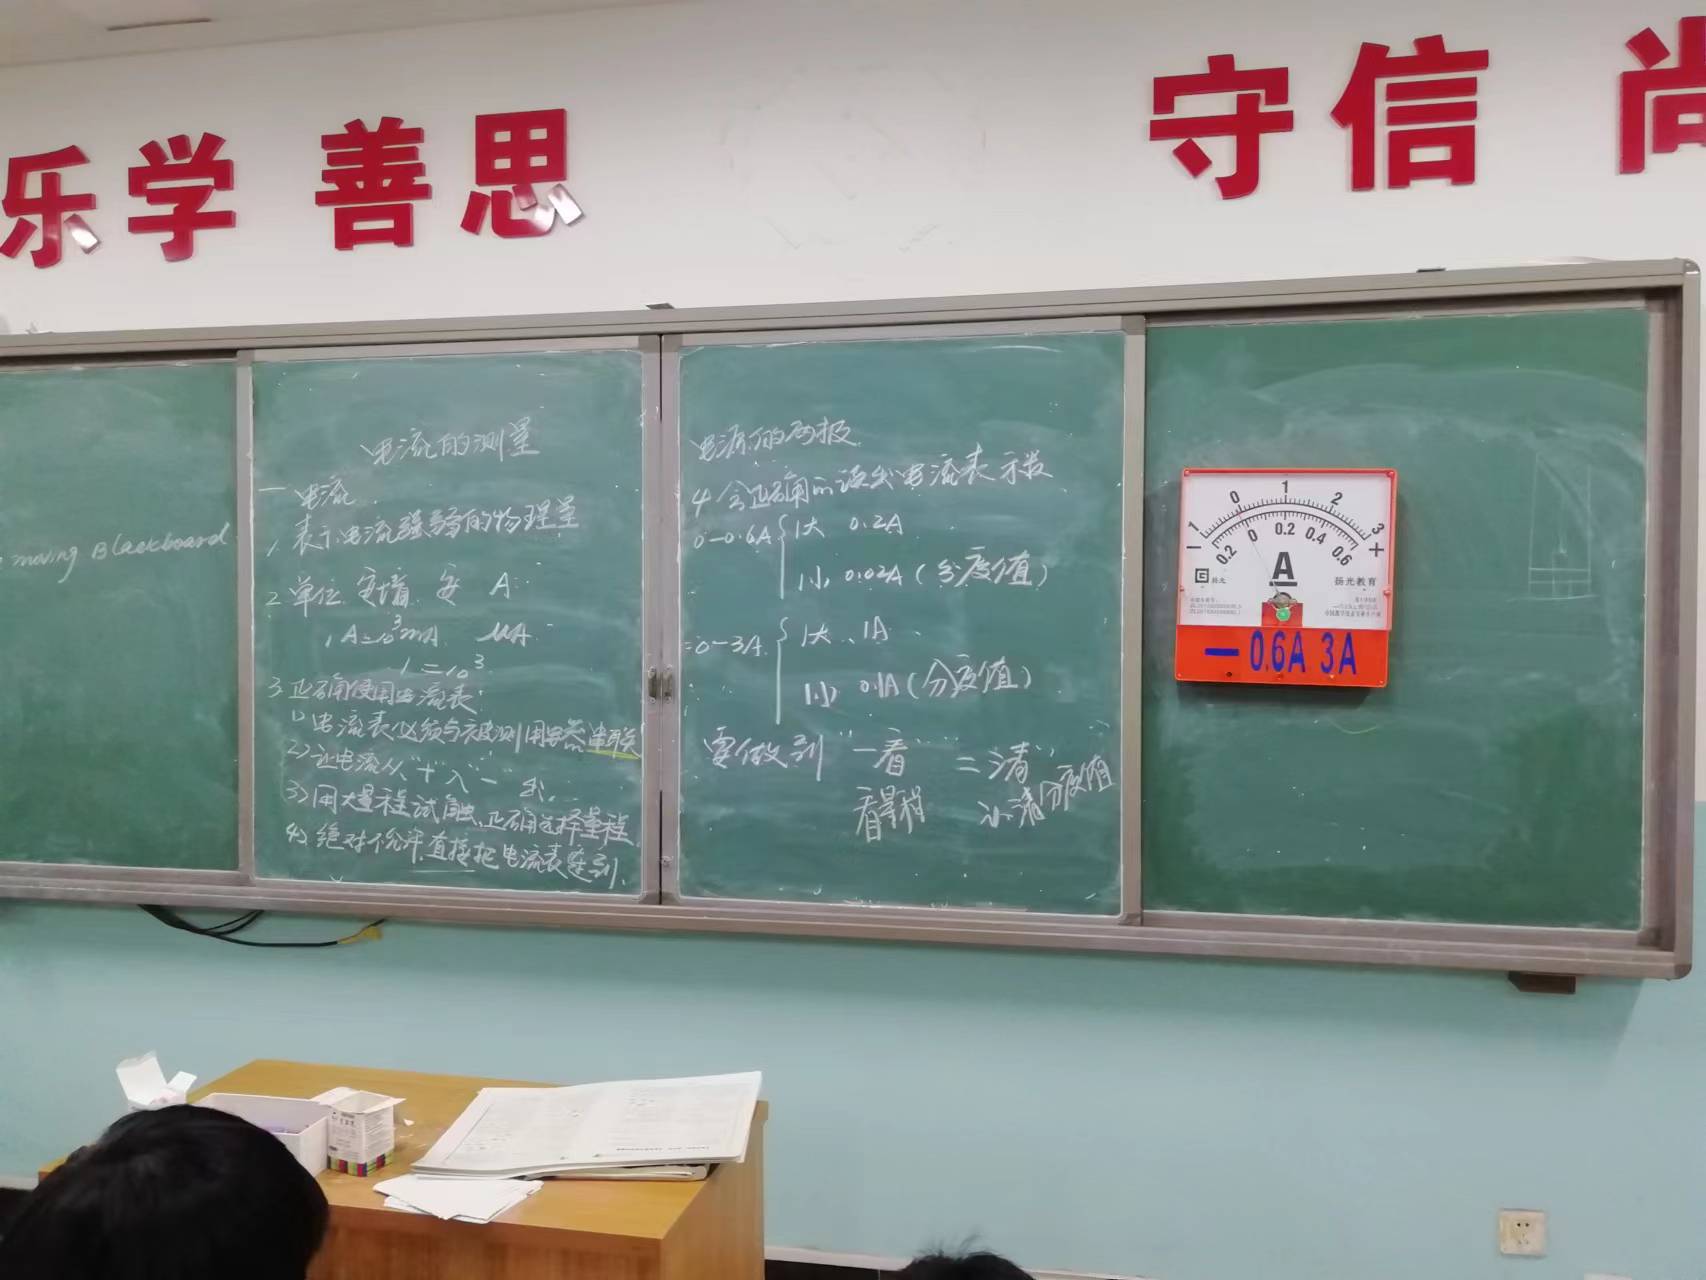 乐学 善思
守信 尚
moving Blackboard
电流的测量
一 电流
1. 表示电流强弱的物理量
2 单位 安培 安 A
1A=10³mA μA
1=10³
3 正确使用电流表:
1) 电流表必须与被测用电器串联
2) 让电流从“+”入“-”出.
3) 用大量程试触,正确选择量程
4) 绝对不允许直接把电流表连到
电源的两极.
4 会正确的读出电流表示数
0-0.6A 1大 0.2A
1小 0.02A (分度值)
0-3A 1大 1A
1小 0.1A (分度值)
要做到 “一看” “二清”
看量程 分度值
1 0 1 2 3
- 0.2 0 0.2 0.4 0.6 +
A
扬光 扬光教育
- 0.6A 3A